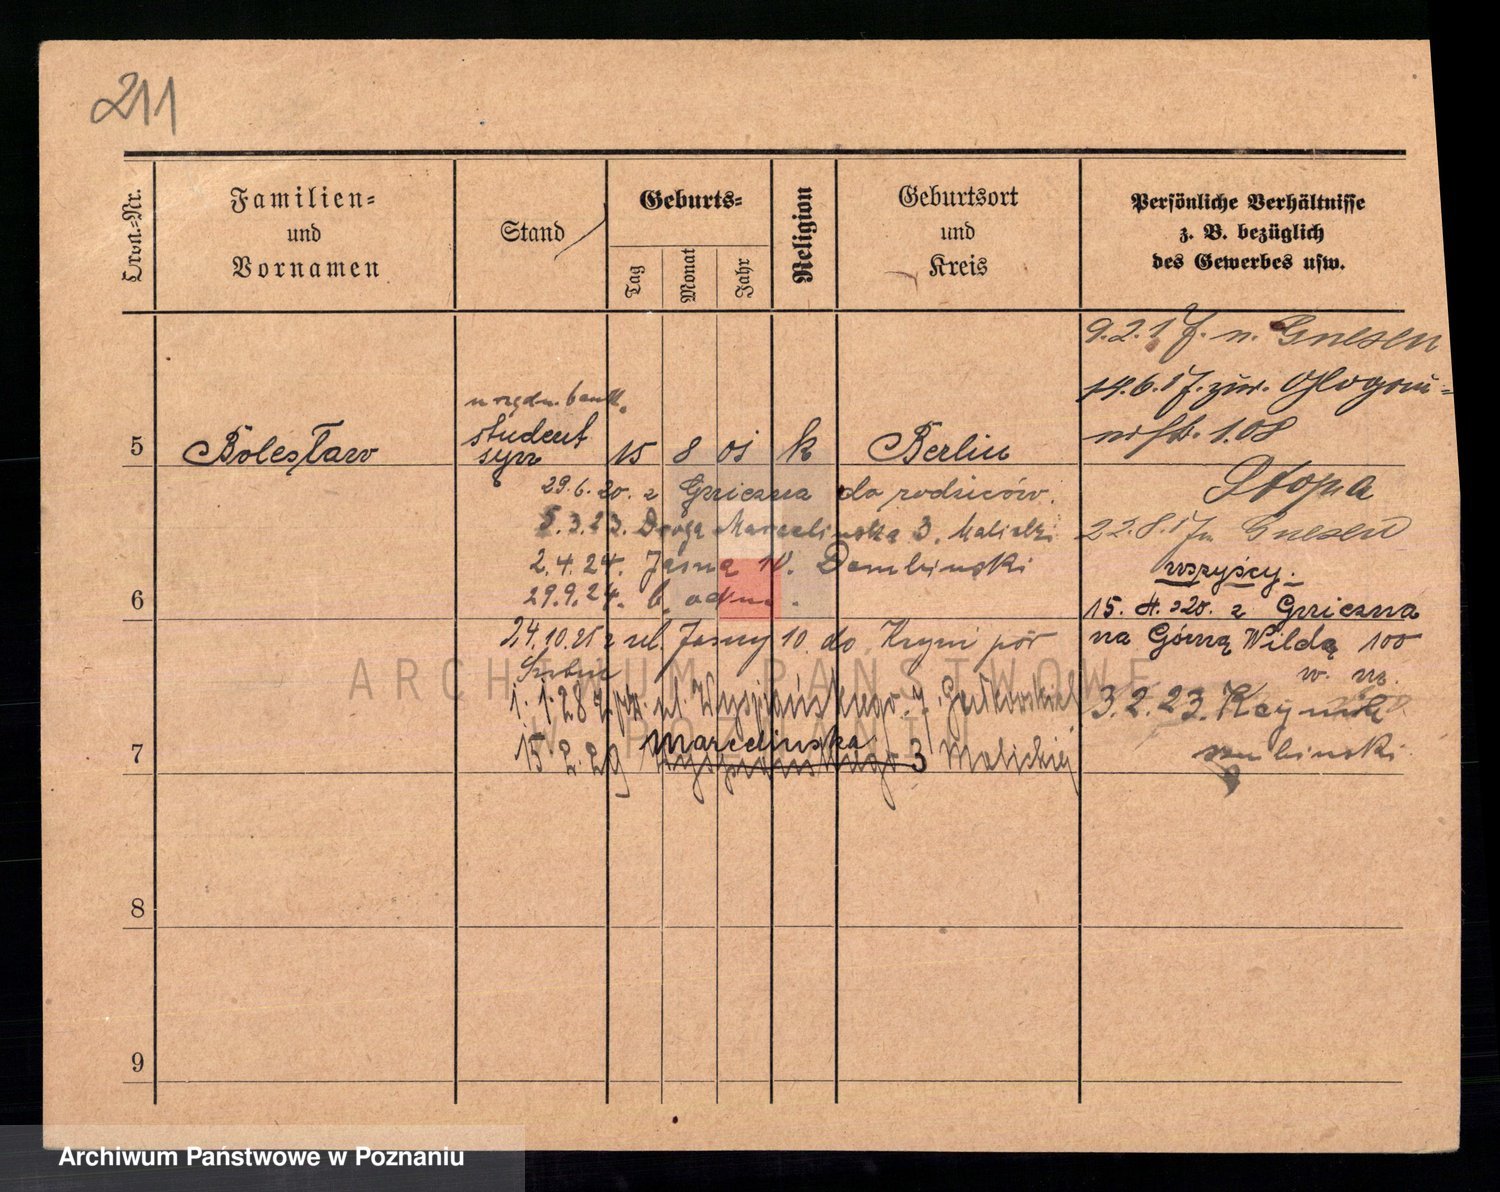 211
Dron.-Nr.
Familien-
und
Vornamen
Stand
Geburts-
Tag
Monat
Jahr
Religion
Geburtsort
und
Kreis
Persönliche Verhältnisse
z. B. bezüglich
des Gewerbes usw.
9.2.17. n. Gnesen
14.6.17. zur. Glogow-
1.08
5
Bolesław
student
syn
15 8 01 k
Berlin
29.6.20. z Gniezna do rodziców.
Stopa
5.3.23. Droga Marcelińska 3. Malicki
22.8.17 n Gnesen
2.4.24. Jasna 10. Dembinski
wszyscy.
6
29.9.24.
15. 4. 20. z Gniezna
24.10.25 z ul. Jasny 10. do
na Górną Wildą 100
w. m.
1.1.28 ul. Wyspiańskiego 7.
3.2.23.
7
15.2.29 Marcelinska 3 Malickiej
8
9
ARCHIWUM PAŃSTWOWE
W POZNANIU
Archiwum Państwowe w Poznaniu